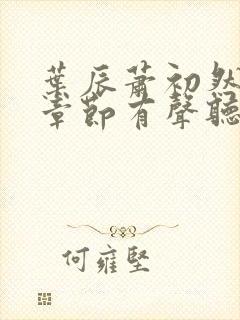 葉辰蕭初然
章節有聲聽
何雍堅